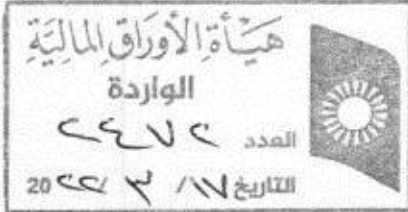 هيَأة الأوراق المالية
الواردة
العدد ٢٤٧٢
التاريخ ١٧/ ٣ /٢٢ 20